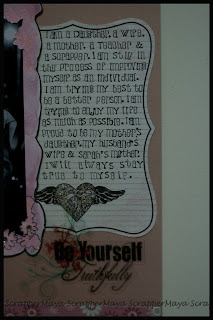 I am a daughter, a wife,
a mother, a teacher &
a scrapper. I am still in
the process of improving
myself as an individual.
I am trying my best to
be a better person. I am
trying to enjoy my life
as much as possible. I am
proud to be my mother's
daughter, my husband's
wife & Sarah's mother.
I will always stay
true to myself.
Be Yourself
Truthfully
ScrapperMaya ScrapperMaya ScrapperMaya Scra